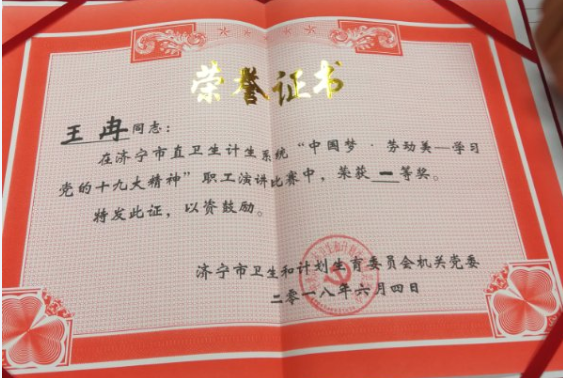 荣誉证书
王冉同志：
在济宁市直卫生计生系统“中国梦·劳动美—学习
党的十九大精神”职工演讲比赛中，荣获一等奖。
特发此证，以资鼓励。
济宁市卫生和计划生育委员会机关党委
二零一八年六月四日